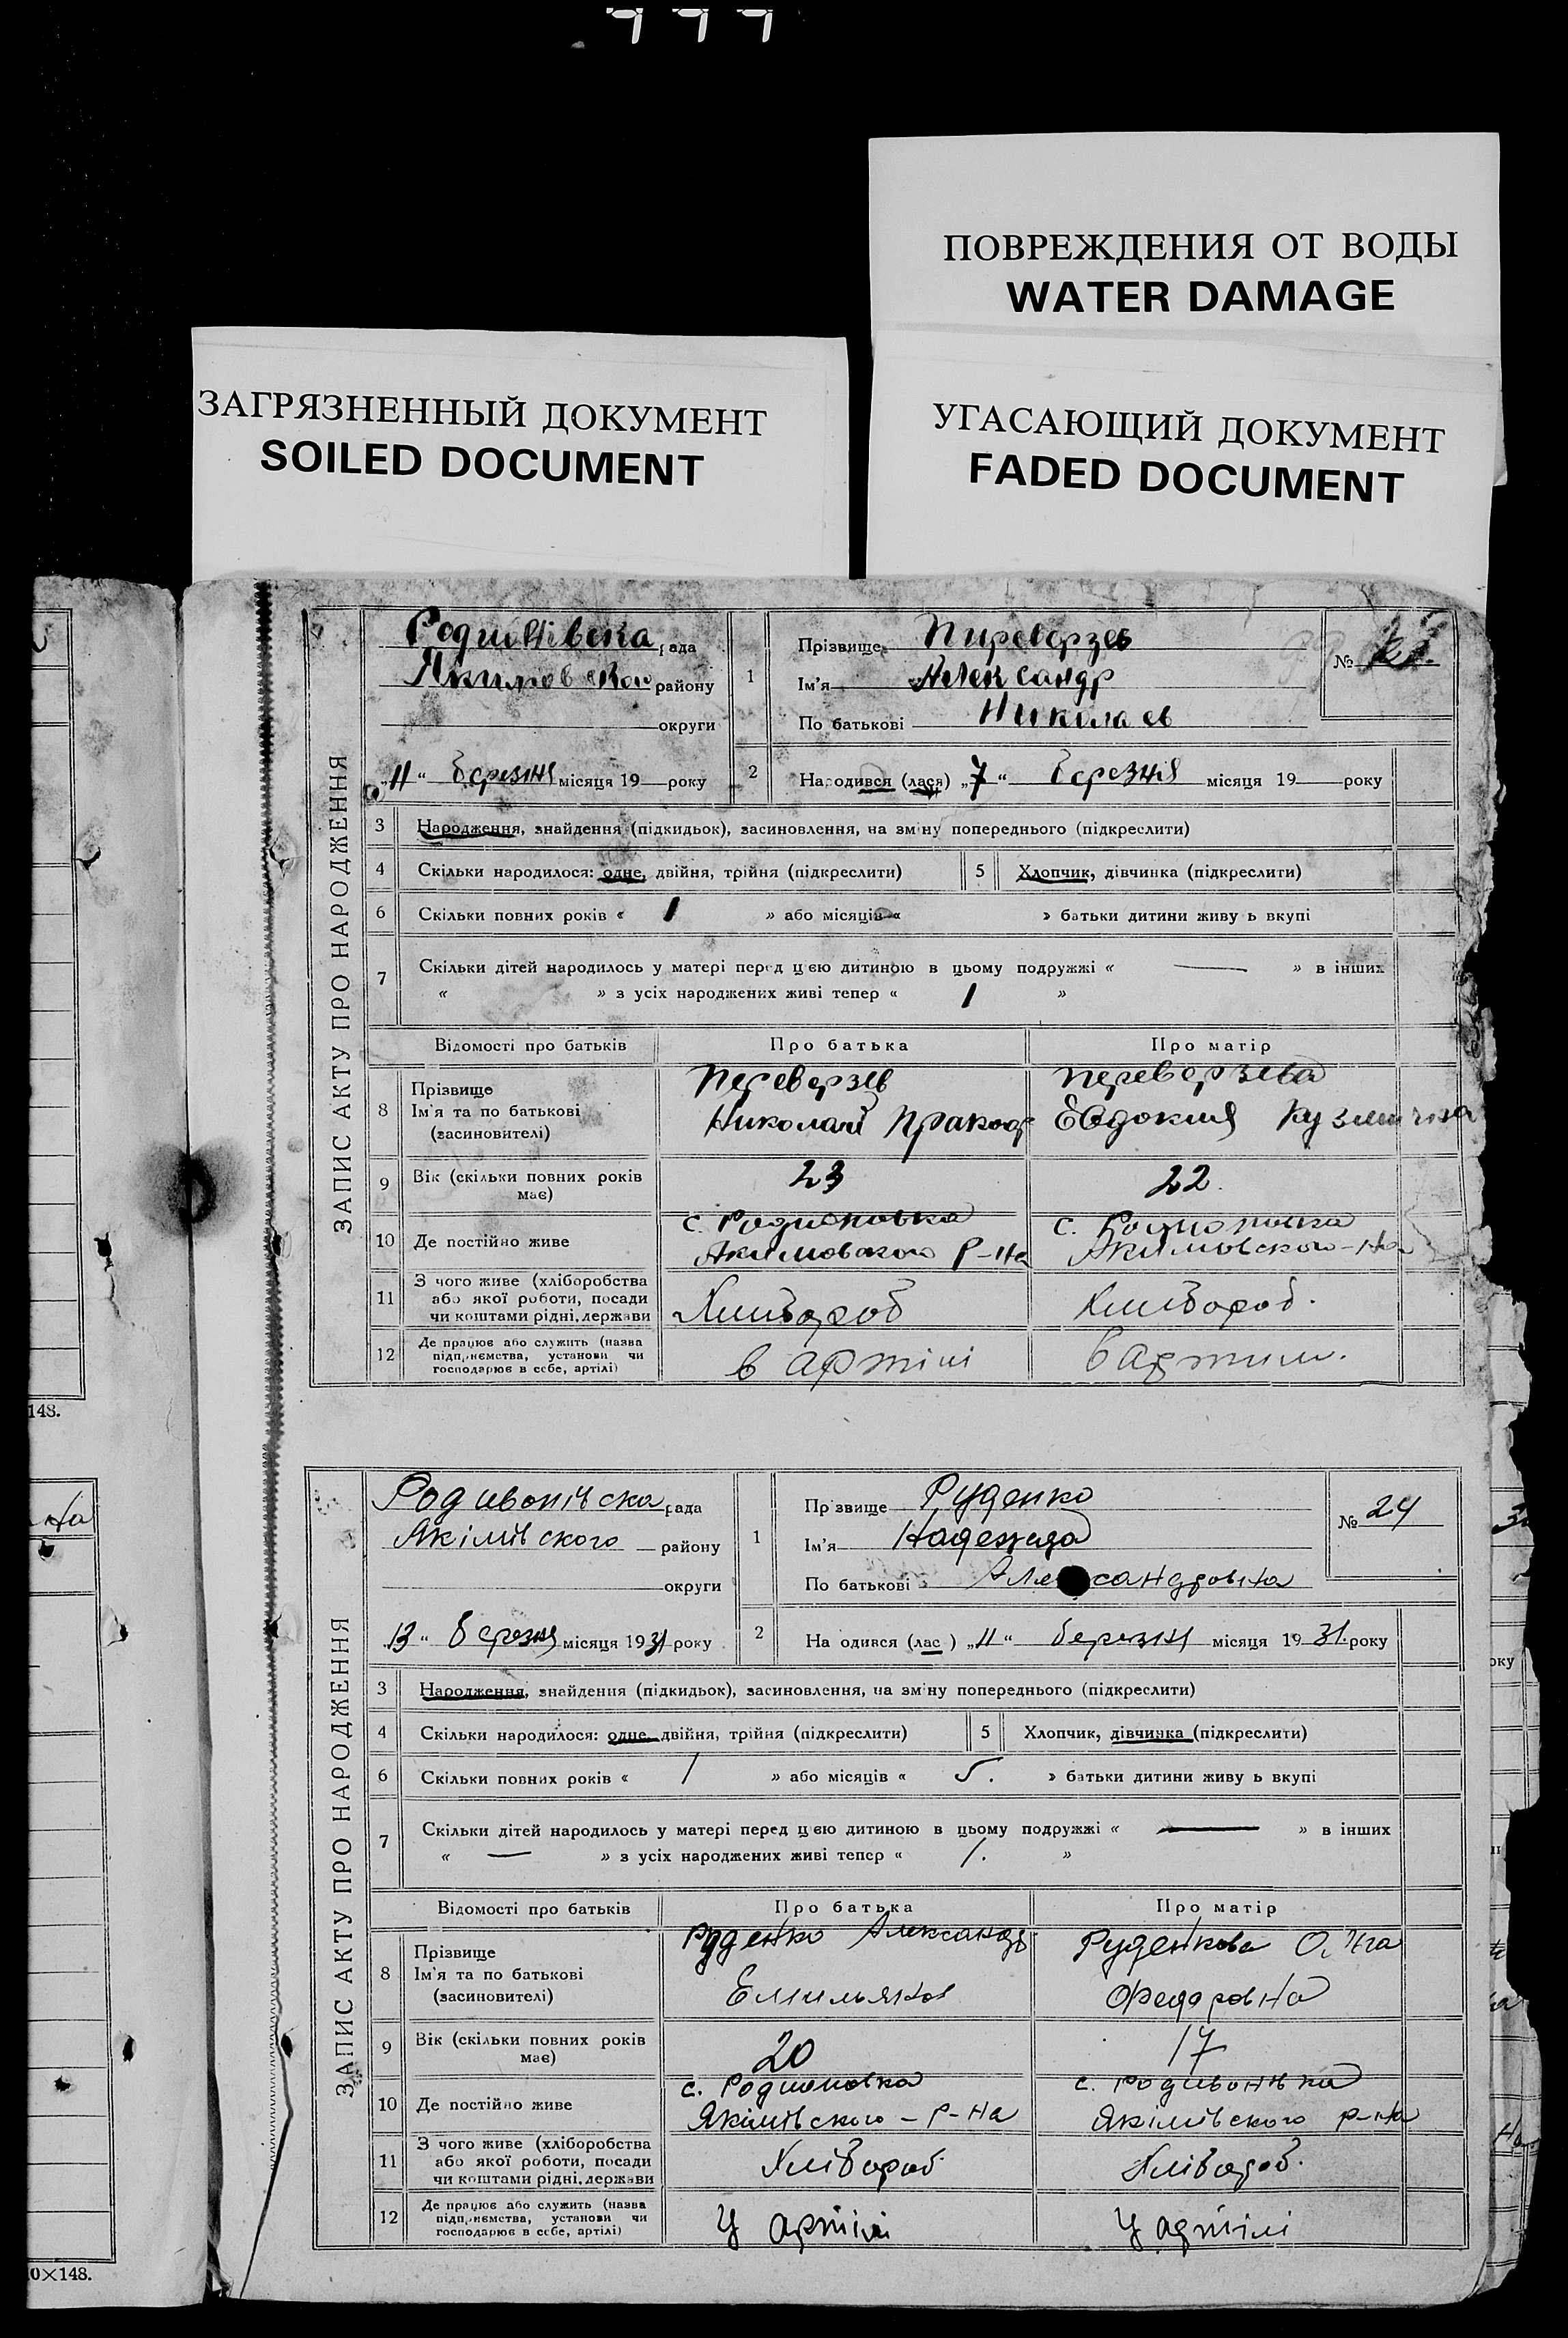 ПОВРЕЖДЕНИЯ ОТ ВОДЫ
WATER DAMAGE
ЗАГРЯЗНЕННЫЙ ДОКУМЕНТ
SOILED DOCUMENT
УГАСАЮЩИЙ ДОКУМЕНТ
FADED DOCUMENT
148.
на
0×148.
ЗАПИС АКТУ ПРО НАРОДЖЕННЯ
рада
района
округи
„11“ березня місяця 19 року
1
Прізвище Пиреверзев
Ім'я Александр
По батькові Николаев
№
2
Народився (лася) „7“ березня місяця 19 року
3 Народження, знайдення (підкидьок), засиновлення, на зміну попереднього (підкреслити)
4 Скільки народилося: одне, двійня, трійня (підкреслити)
5 Хлопчик, дівчинка (підкреслити)
6 Скільки повних років « 1 » або місяців « » батьки дитини живу ь вкупі
7 Скільки дітей народилось у матері перед цією дитиною в цьому подружжі « — » в інших
« » з усіх народжених живі тепер « 1 »
Відомості про батьків Про батька Про матір
8 Прізвище Ім'я та по батькові (засиновителі)
Переверзев Николай
Переверзева Евдокия
9 Вік (скільки повних років має) 23 22.
10 Де постійно живе
с. Родионовка Акимовского р-на
с. Родионовка Акимовского-на
11 З чого живе (хліборобства або якої роботи, посади чи коштами рідні, держави
Хлибороб Хлибороб.
12 Де працює або служить (назва підприємства, установи чи господарює в себе, артілі)
в артілі в артили.
ЗАПИС АКТУ ПРО НАРОДЖЕННЯ
Родивонівска рада
Якімівского району
округи
13“ березня місяця 1931 року
1
Прізвище Руденко
Ім'я Надежда
По батькові Александровна
№ 24
2
На одився (лас ) „11“ березня місяця 1931. року
3 Народження, знайдення (підкидьок), засиновлення, на зміну попереднього (підкреслити)
4 Скільки народилося: одне, двійня, трійня (підкреслити)
5 Хлопчик, дівчинка (підкреслити)
6 Скільки повних років « 1 » або місяців « 5. » батьки дитини живу ь вкупі
7 Скільки дітей народилось у матері перед цією дитиною в цьому подружжі « — » в інших
« — » з усіх народжених живі тепер « 1. »
Відомості про батьків Про батька Про матір
8 Прізвище Ім'я та по батькові (засиновителі)
Руденко Александр Емильянов
Руденкова Федоровна
9 Вік (скільки повних років має) 20 17
10 Де постійно живе
с. Родионовка Якімівского-р-на
с. Родивонівка Якімівского р-на
11 З чого живе (хліборобства або якої роботи, посади чи коштами рідні, держави
Хлібороб Хлібороб.
12 Де працює або служить (назва підприємства, установи чи господарює в себе, артілі)
У артілі У артілі